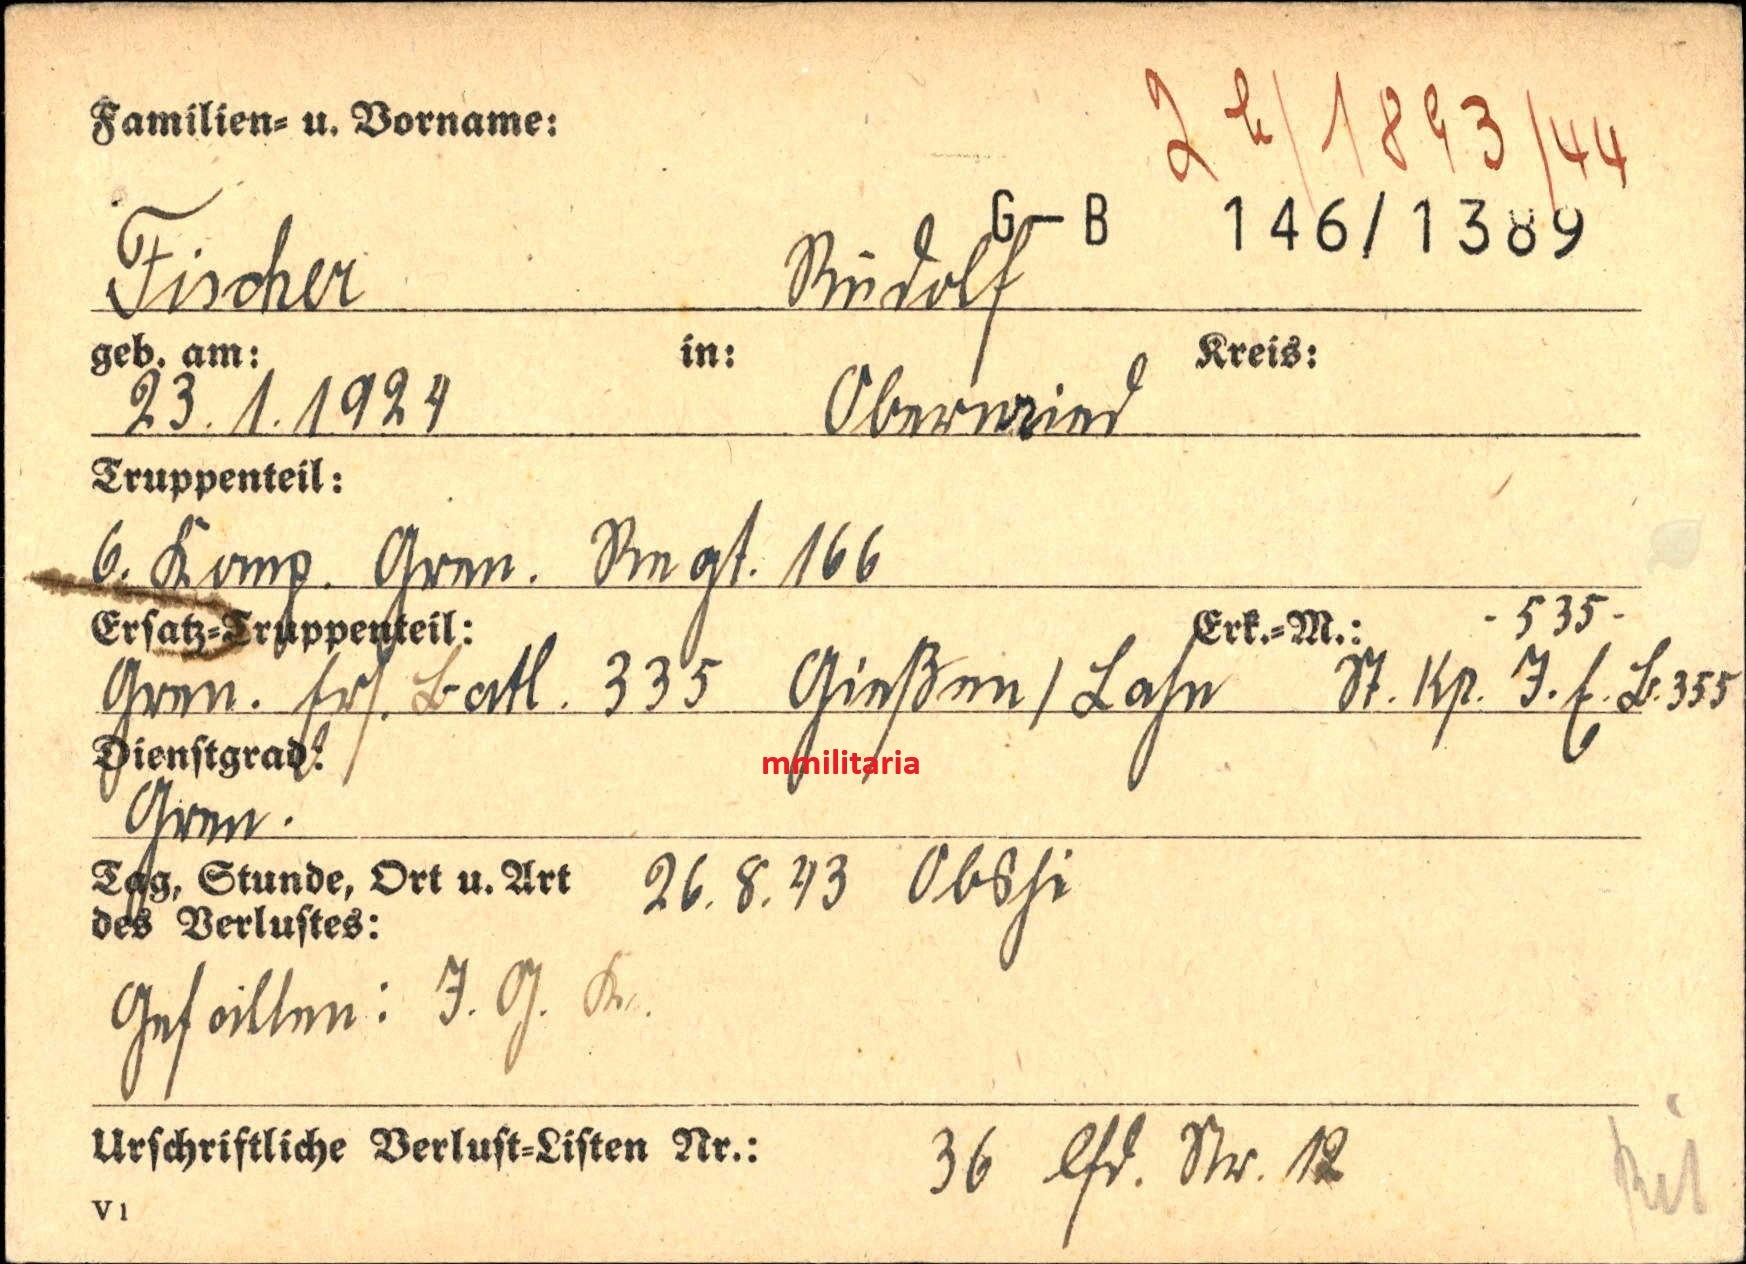 Familien= u. Vorname:
2 b/1893/44
G-B 146/1389
Fischer Rudolf
geb. am: in: Kreis:
23. 1. 1924 Oberwried
Truppenteil:
6. Komp. Gren. Regt. 166
Ersatz=Truppenteil: Erk.=M.: -535-
Gren. Ers. Batl. 335 Gießen/Lahn St. Kp. I. E. B. 355
Dienstgrad:
mmilitaria
Gren.
Tag, Stunde, Ort u. Art 26. 8. 43
des Verlustes:
Gefallen: I. G.
Urschriftliche Verlust=Listen Nr.: 36 lfd. Nr. 12
V 1